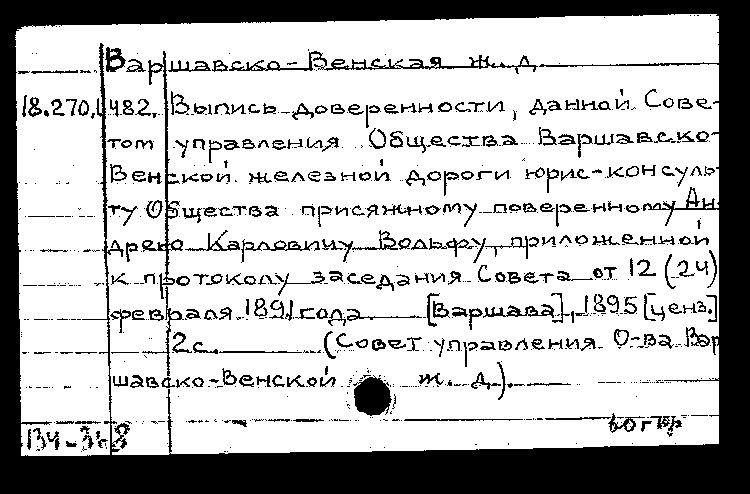 Варшавско-Венская ж. д.
18.270.1.482. Выпись доверенности, данной Сове-
том управления Общества Варшавско-
Венской железной дороги юрис-консуль-
ту Общества присяжному поверенному Ан-
дрею Карловичу Вольфу, приложенной
к протоколу заседания Совета от 12 (24)
февраля 1891 года. [Варшава], 1895 [ценз.]
2 с. (Совет управления О-ва Вар
шавско-Венской ж. д.).
134-348